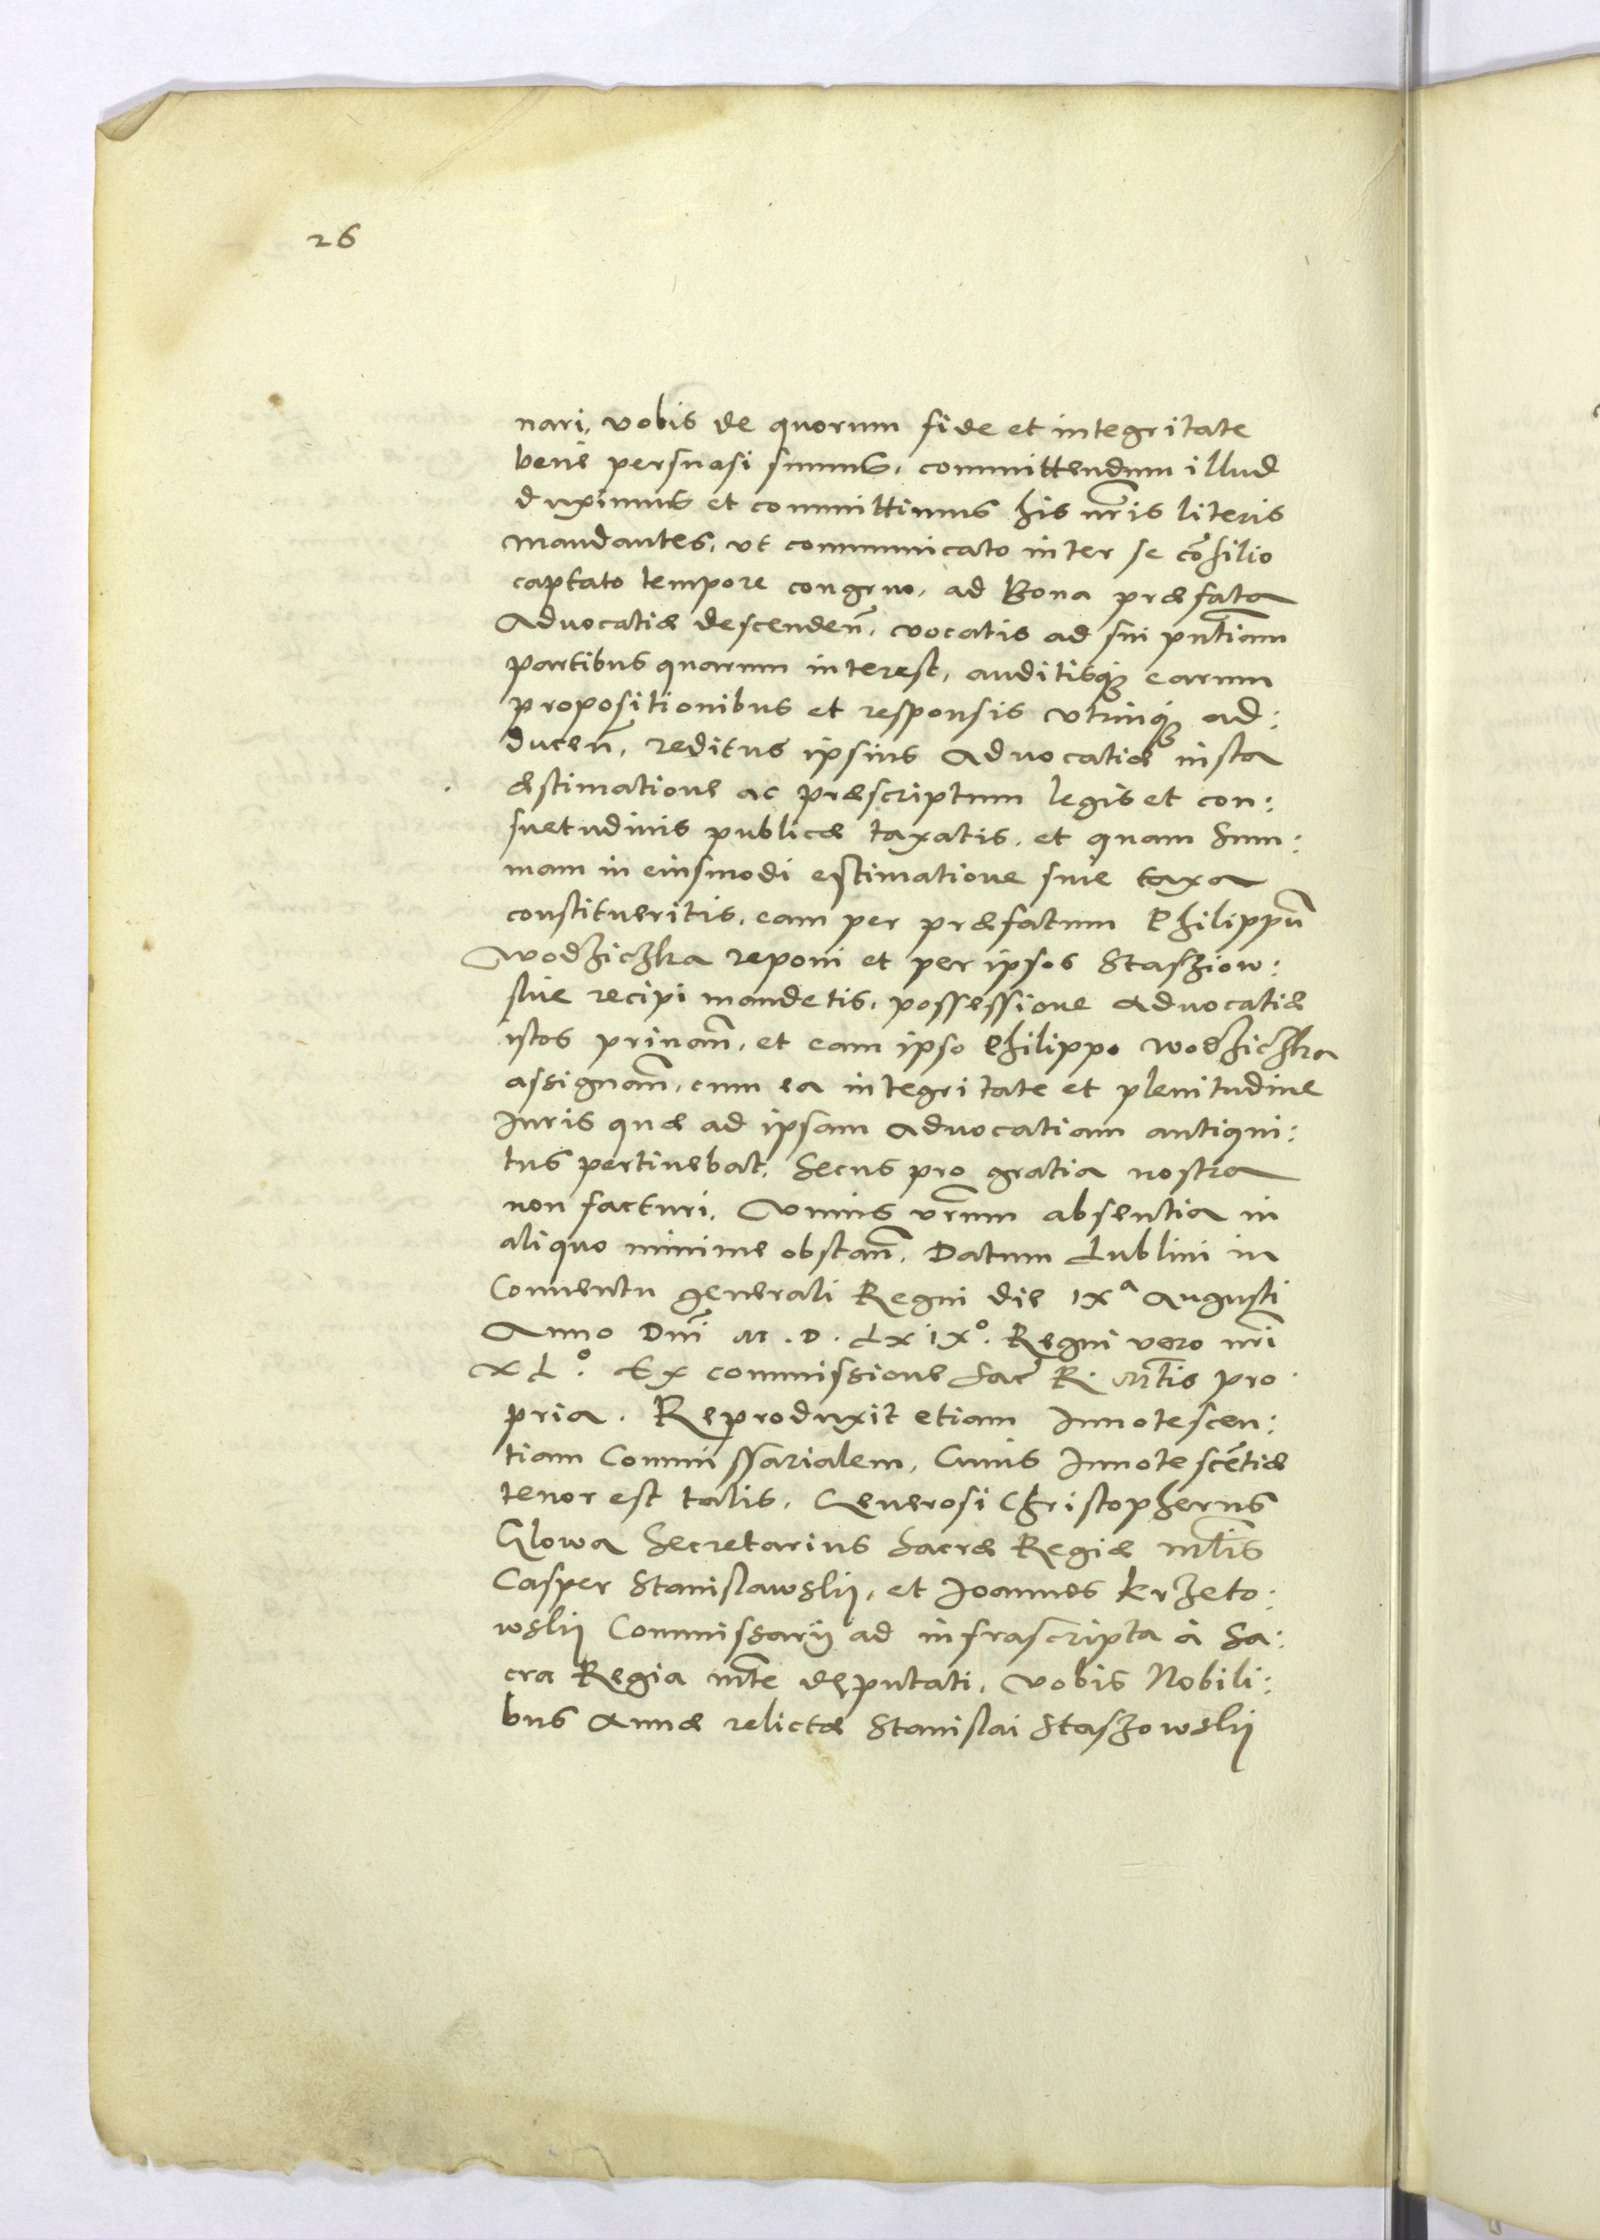 26
nari, vobis de quorum fide et integritate
bene persuasi sumus, committendum illud
duximus et committimus his nr̃is literis
mandantes, vt communicato inter se cõsilio
captato tempore congruo, ad Bona præfata
Aduocatiæ descendeñ, vocatis ad sui pñtiam
partibus quarum interest, auditisq; earum
propositionibus et responsis vtrinq; ad:
duceñ, reditus ipsius Aduocatiæ iusta
æstimatione ac præscriptum legis et con:
suetudinis publicæ taxatis, et quam Sum:
mam in eiusmodi estimatione siue taxa
constitueritis, eam per præfatum Philippũ
Wodziczka reponi et per ipsos Stasziow:
skie recipi mandetis, possessione Aduocatiæ
istos priuañ, et eam ipso Philippo Wodziczka
assignañ, cum ea integritate et plenitudine
Iuris quæ ad ipsam Aduocatiam antiqui:
tus pertinebat, Secus pro gratia nostra
non facturi. Vnius vr̃um absentia in
aliquo minime obstañ. Datum Lublini in
Conuentu generali Regni die IXª Augusti
Anno Dñi M. D. LXIXº. Regni vero nr̃i
XLº. Ex commissione Sac̃ R. Mt̃is pro
pria. Reproduxit etiam Innotescen:
tiam Commissarialem, Cuius Innotescẽtiæ
tenor est talis, Generosi Christopherus
Glowa Secretarius Sacræ Regiæ Mt̃is
Casper Stanislawskij, et Joannes krzeto:
wskij Commissarij ad infrascripta à Sa:
cra Regia Mt̃te deputati, Vobis Nobili:
bus Annæ relictæ Stanislai Staszowskij